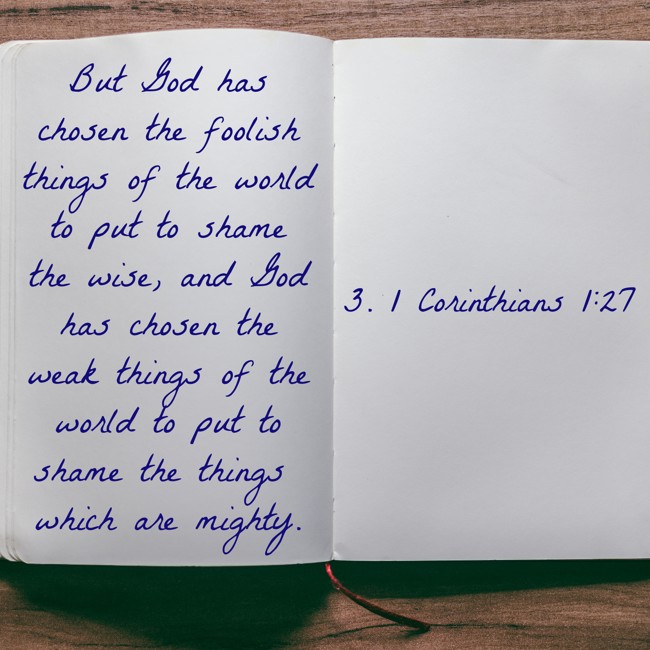 But God has
chosen the foolish
things of the world
to put to shame
the wise, and God
has chosen the
weak things of the
world to put to
shame the things
which are mighty.
3. 1 Corinthians 1:27